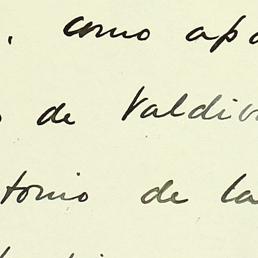 . como apa
de Valdiv
tonio de la